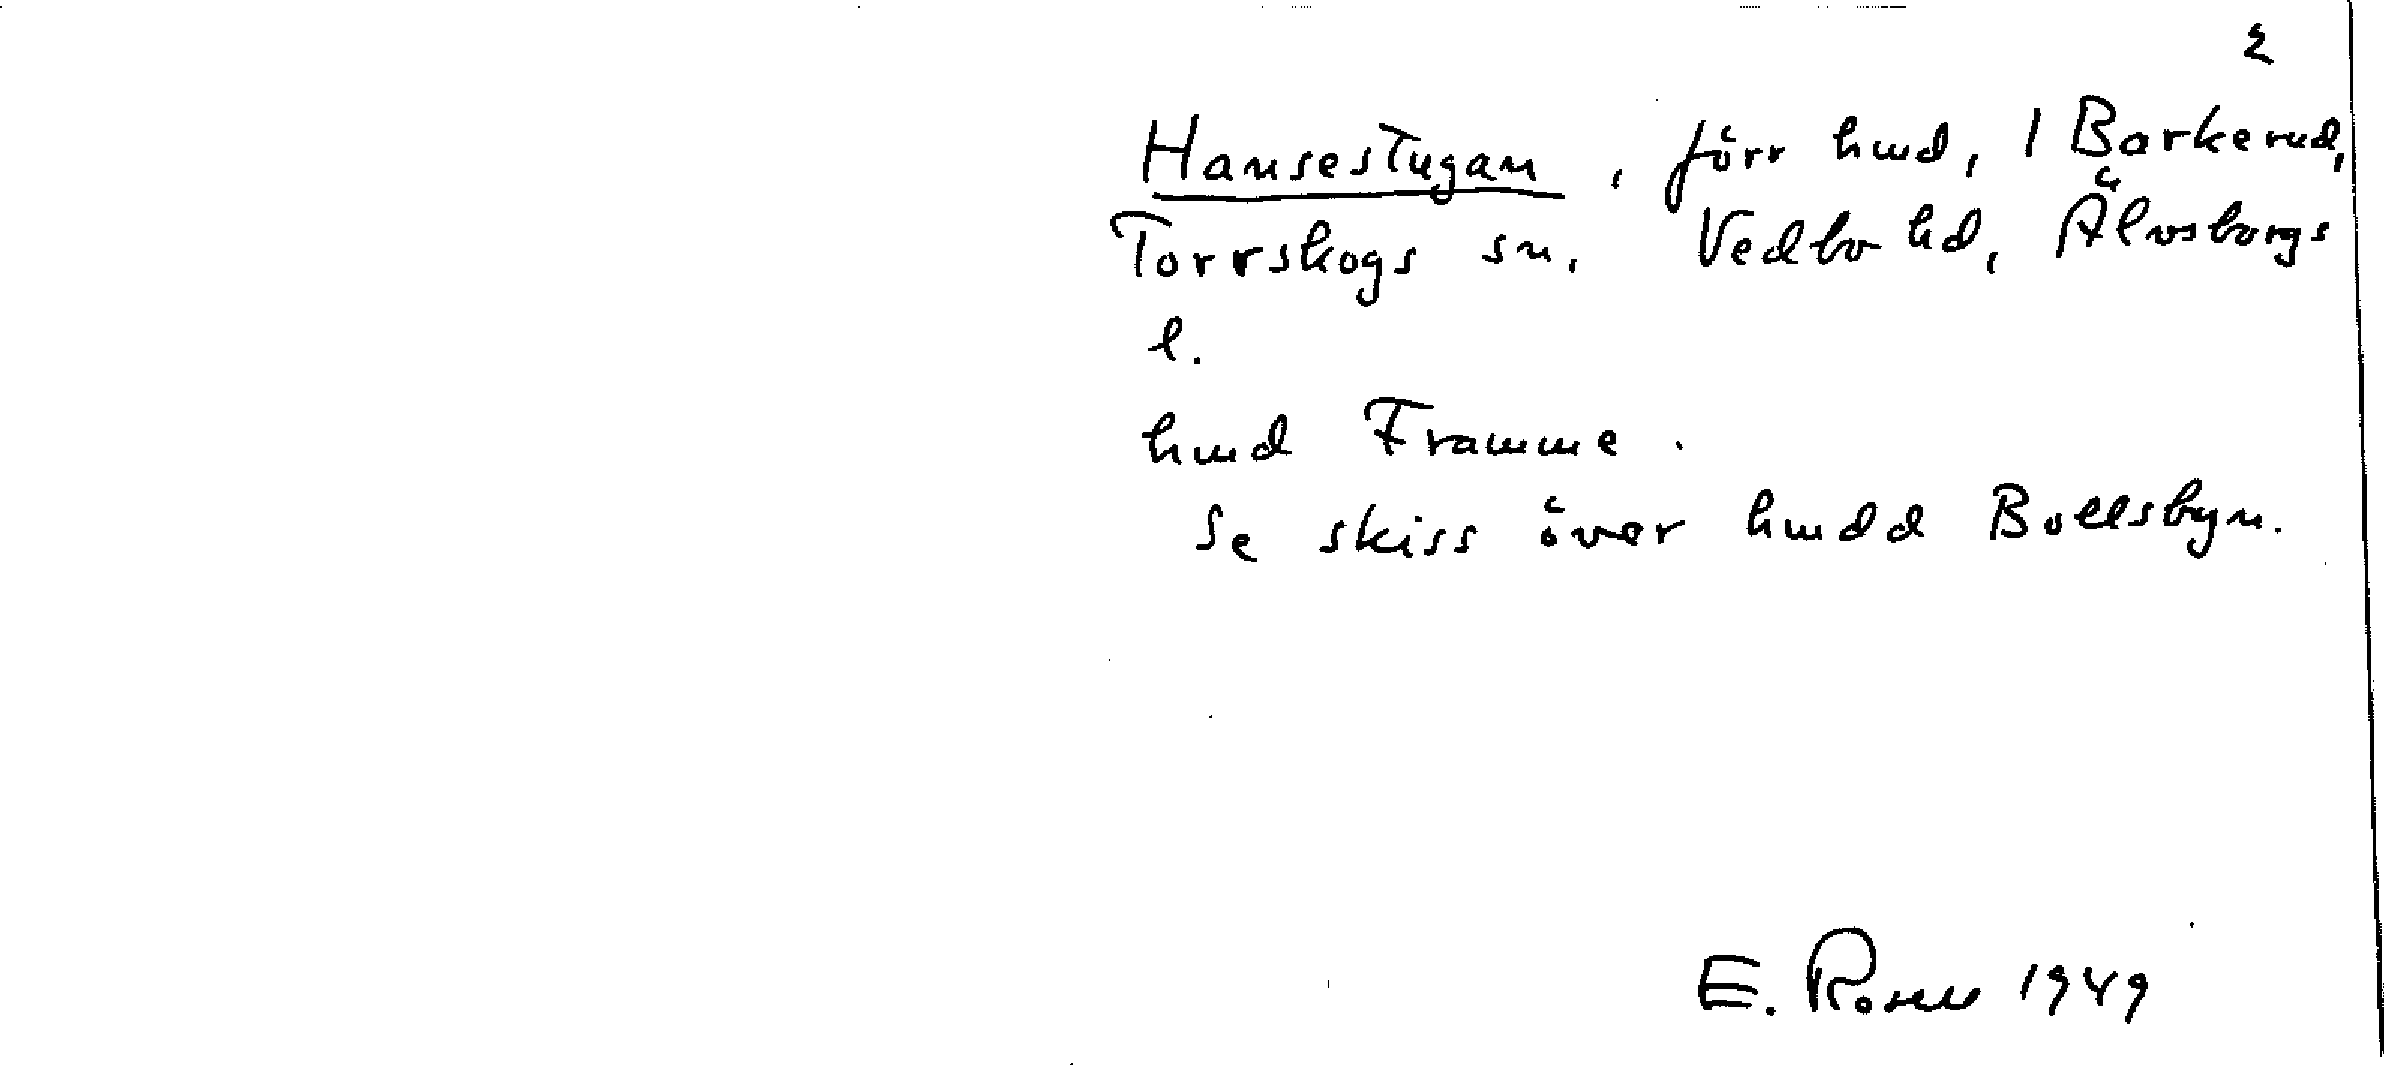 2
Hansestugan, förr hmd, 1 Barkerud,
Torrskogs sn. Vedbo hd, Älvsborgs
l.
hmd Framme.
Se skiss över hmdd Bollsbyn.
E. Rosell 1949